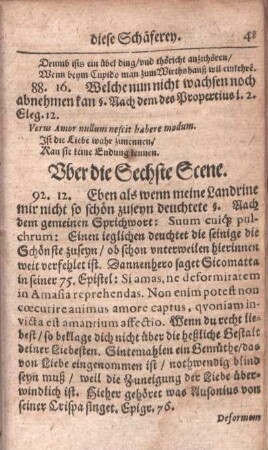 diese Schäferey. 41
Drumb ists ein übel ding/vnd thöricht anzuhören/
Wenn beym Cupido man zum Wirthshauß wil einkehrē.
88. 16. Welche nun nicht wachsen noch
abnehmen kan ꝛ. Nach dem des Propertius l. 2.
Eleg. 12.
Verus Amor nullum nescit habere modum.
Ist die Liebe wahr zunennen/
Kan sie keine Endung kennen.
Vber die Sechste Scene.
92. 12. Eben als wenn meine Landrine
mir nicht so schön zuseyn deuchtete ꝛ. Nach
dem gemeinen Sprichwort: Suum cuiq; pul-
chrum: Einen ieglichen deuchtet die seinige die
Schönste zuseyn/ ob schon vnterweilen hierinnen
weit verfehlet ist. Dannenhero saget Sicomatta
in seiner 75. Epistel: Si amas, ne deformitatem
in Amasia reprehendas. Non enim potest non
cœcutire animus amore captus, qvoniam in-
victa est amantium affectio. Wenn du recht lie-
best/ so beklage dich nicht über die heßliche Gestalt
deiner Liebesten. Sintemahlen ein Gemüthe/ das
von Liebe eingenommen ist/ nothwendig blind
seyn muß/ weil die Zuneigung der Liebe über-
windlich ist. Hieher gehöret was Ausonius von
seiner Crispa singet. Epigr. 76.
Deformem